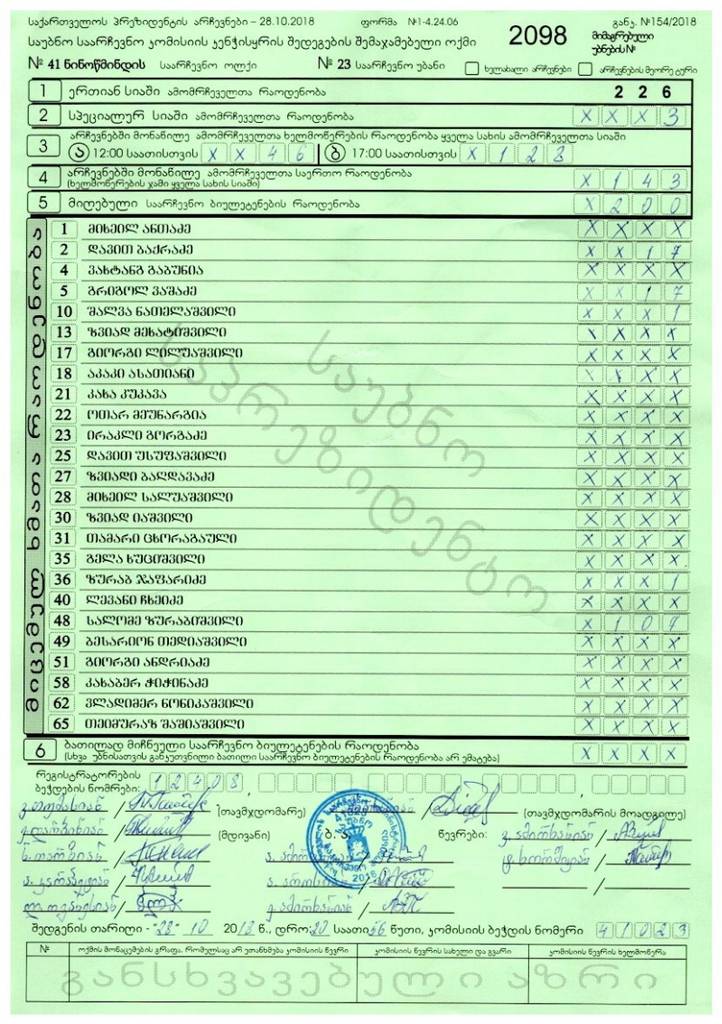 საქართველოს პრეზიდენტის არჩევნები – 28.10.2018 ფორმა №1-4.24.06 განკ. №154/2018
საუბნო საარჩევნო კომისიის კენჭისყრის შედეგების შემაჯამებელი ოქმი 2098 მიმაგრებული უბნების№
№ 41 ნინოწმინდის საარჩევნო ოლქი № 23 საარჩევნო უბანი ხელახალი არჩევნები არჩევნების მეორე ტური
1 ერთიან სიაში ამომრჩეველთა რაოდენობა 2 2 6
2 სპეციალურ სიაში ამომრჩეველთა რაოდენობა X X X 3
3 არჩევნებში მონაწილე ამომრჩეველთა ხელმოწერების რაოდენობა ყველა სახის ამომრჩეველთა სიაში
ა 12:00 საათისთვის X X 4 6 ბ 17:00 საათისთვის X 1 2 8
4 არჩევნებში მონაწილე ამომრჩეველთა საერთო რაოდენობა X 1 4 3
(ხელმოწერების ჯამი ყველა სახის სიაში)
5 მიღებული საარჩევნო ბიულეტენების რაოდენობა X 2 0 0
მიცემულ ხმათა რაოდენობა
1 მიხეილ ანთაძე X X X X
2 დავით ბაქრაძე X X 1 7
4 ვახტანგ გაბუნია X X X X
5 გრიგოლ ვაშაძე X X 1 7
10 შალვა ნათელაშვილი X X X 1
13 ზვიად მეხატიშვილი X X X X
17 გიორგი ლილუაშვილი X X X X
18 აკაკი ასათიანი X X X X
21 კახა კუკავა X X X X
22 ოთარ მეუნარგია X X X X
23 ირაკლი გორგაძე X X X X
25 დავით უსუფაშვილი X X X X
27 ზვიადი ბაღდავაძე X X X X
28 მიხეილ სალუაშვილი X X X X
30 ზვიად იაშვილი X X X X
31 თამარი ცხორაგაული X X X X
35 გელა ხუციშვილი X X X X
36 ზურაბ ჯაფარიძე X X X 1
40 ლევანი ჩხეიძე X X X X
48 სალომე ზურაბიშვილი X 1 0 7
49 ბესარიონ თედიაშვილი X X X X
51 გიორგი ანდრიაძე X X X X
58 კახაბერ ჭიჭინაძე X X X X
62 ვლადიმერ ნონიკაშვილი X X X X
65 თეიმურაზ შაშიაშვილი X X X X
საუბნო საპრეზიდენტო
6 ბათილად მიჩნეული საარჩევნო ბიულეტენების რაოდენობა X X X X
(სხვა უბნისათვის განკუთვნილი ბათილი საარჩევნო ბიულეტენების რაოდენობა არ ემატება)
რეგისტრატორების ბეჭდების ნომრები: 1 2 4 0 8
(თავმჯდომარე) (თავმჯდომარის მოადგილე)
(მდივანი) ბ.ა. წევრები:
შედგენის თარიღი - 28 - 10 2018 წ., დრო: 20 საათი 56 წუთი, კომისიის ბეჭდის ნომერი 4 1 0 2 3
№ ოქმის მონაცემების გრაფა, რომელსაც არ ეთანხმება კომისიის წევრი კომისიის წევრის სახელი და გვარი კომისიის წევრის ხელმოწერა
განსხვავებული აზრი